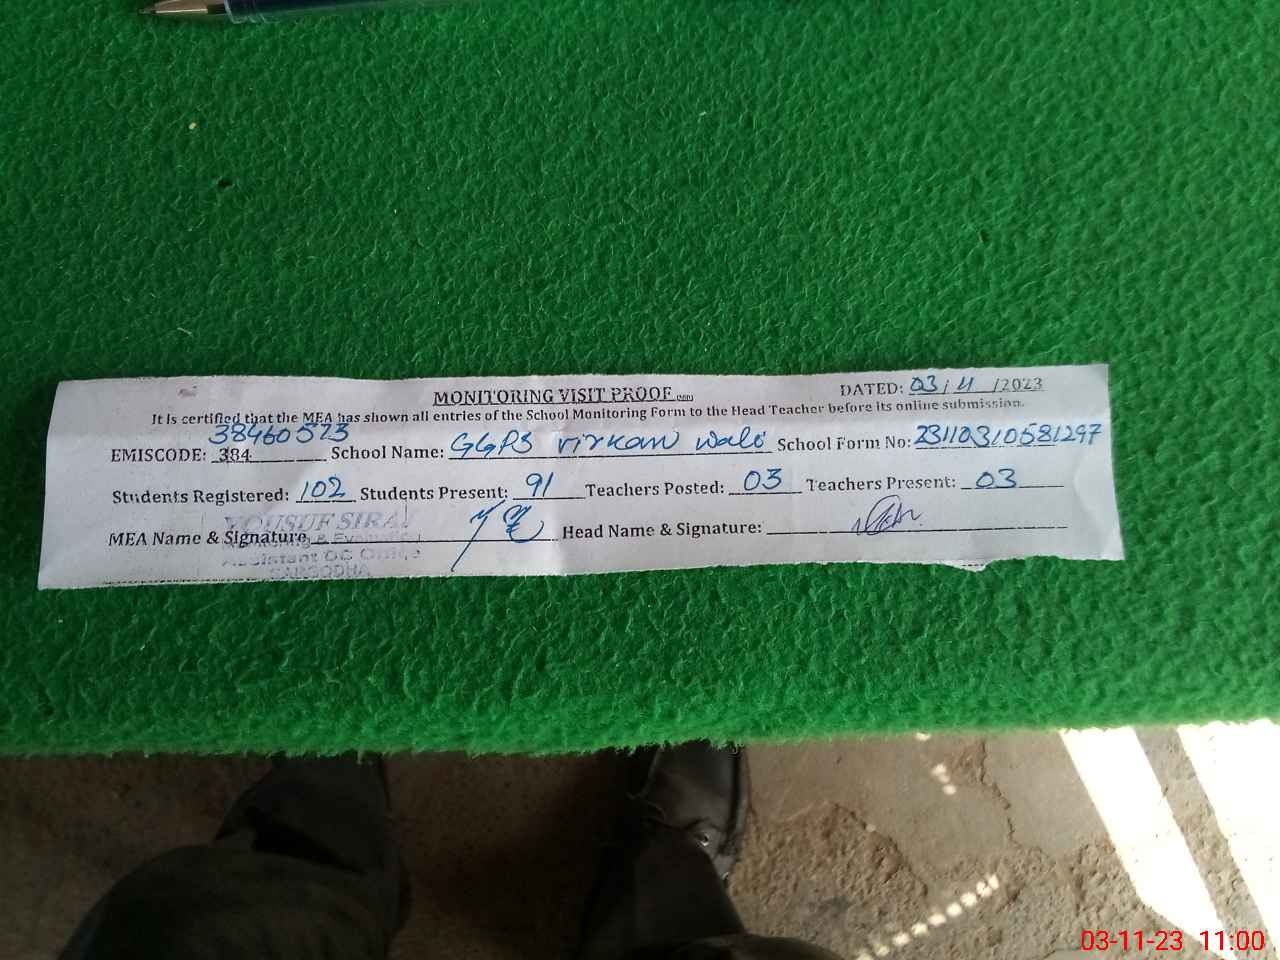 MONITORING VISIT PROOF
DATED: 03/11/2023
It is certified that the MEA has shown all entries of the School Monitoring Form to the Head Teacher before its online submission.
38460573
EMISCODE: 384 School Name: GGPS virkan wali School Form No: 23110310581297
Students Registered: 102 Students Present: 91 Teachers Posted: 03 Teachers Present: 03
YOUSUF SIRAJ
MEA Name & Signature Head Name & Signature:
Monitoring & Evaluation
Assistant DC Office
SARGODHA
03-11-23 11:00